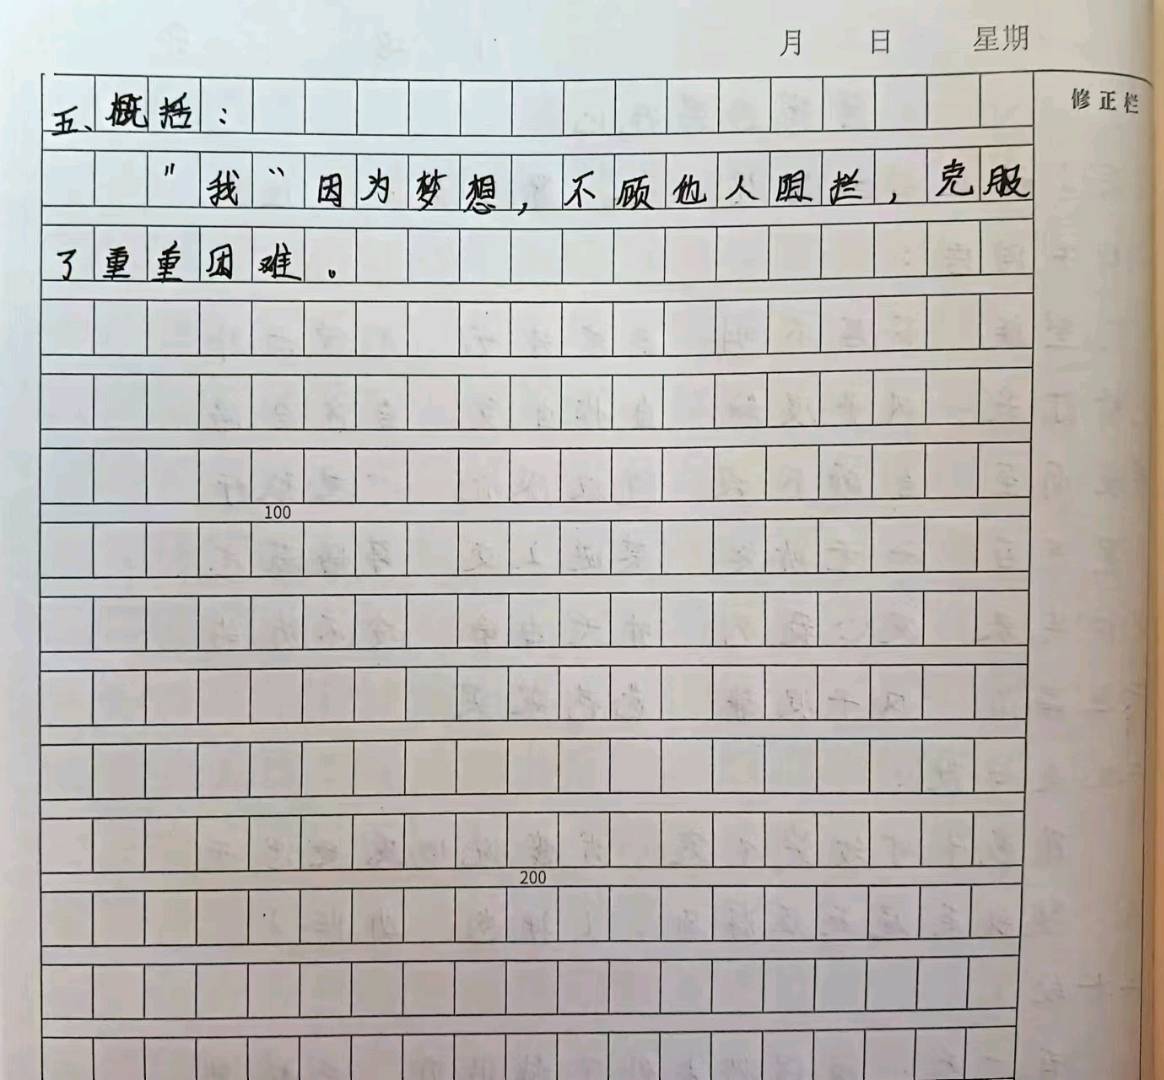 月 日 星期
修正栏
五、概括：
"我"因为梦想，不顾他人阻拦，克服
了重重困难。
100
200